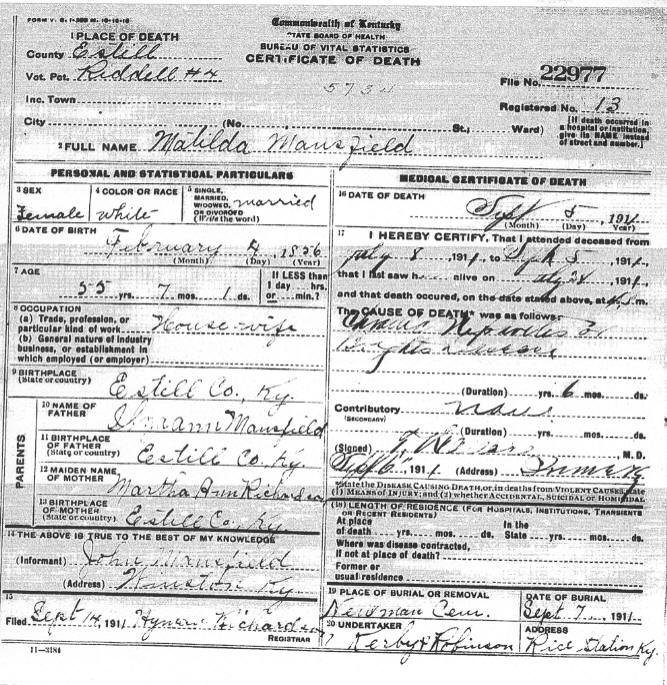 FORM V. S. 1-
Commonwealth of Kentucky
STATE BOARD OF HEALTH
BUREAU OF VITAL STATISTICS
CERTIFICATE OF DEATH
1 PLACE OF DEATH
County Estill
Vot. Pct. Riddell #4
Inc. Town
City (No. St., Ward)
File No. 22977
Registered No. 13
[If death occurred in a hospital or institution, give its NAME instead of street and number.]
2 FULL NAME Matilda Mansfield
PERSONAL AND STATISTICAL PARTICULARS
3 SEX Female
4 COLOR OR RACE white
5 SINGLE, MARRIED, WIDOWED, OR DIVORCED (Write the word) married
6 DATE OF BIRTH
February 4, 1856
(Month) (Day) (Year)
7 AGE
55 yrs. 7 mos. 1 ds.
If LESS than 1 day ... hrs. or ... min.?
8 OCCUPATION
(a) Trade, profession, or particular kind of work House-wife
(b) General nature of industry
business, or establishment in
which employed (or employer)
9 BIRTHPLACE
(State or country) Estill Co., Ky.
PARENTS
10 NAME OF FATHER Mansfield
11 BIRTHPLACE OF FATHER
(State or country) Estill Co. Ky.
12 MAIDEN NAME OF MOTHER Martha Ann Richardson
13 BIRTHPLACE OF MOTHER
(State or country) Estill Co. Ky
14 THE ABOVE IS TRUE TO THE BEST OF MY KNOWLEDGE
(Informant) John Mansfield
(Address) Winston Ky.
15
Filed Sept 14, 1911 Richardson
REGISTRAR
11-3184
MEDICAL CERTIFICATE OF DEATH
16 DATE OF DEATH
Sept 5, 1911
(Month) (Day) (Year)
17 I HEREBY CERTIFY, That I attended deceased from
July 8, 1911, to Sept 5, 1911,
that I last saw h alive on , 1911,
and that death occured, on the date stated above, at m.
The CAUSE OF DEATH* was as follows:
Nephritis or
Brights disease
(Duration) yrs. 6 mos. ds.
Contributory
(SECONDARY)
(Duration) yrs. mos. ds.
(Signed) M. D.
Sept 6, 1911 (Address)
*State the DISEASE CAUSING DEATH, or, in deaths from VIOLENT CAUSES, state
(1) MEANS OF INJURY; and (2) whether ACCIDENTAL, SUICIDAL or HOMICIDAL
(18) LENGTH OF RESIDENCE (FOR HOSPITALS, INSTITUTIONS, TRANSIENTS
OR RECENT RESIDENTS)
At place of death yrs. mos. ds. In the State yrs. mos. ds.
Where was disease contracted,
If not at place of death?
Former or
usual residence
19 PLACE OF BURIAL OR REMOVAL
Newman Cem.
DATE OF BURIAL
Sept 7, 1911
20 UNDERTAKER
Kerby & Robinson
ADDRESS
Rice Station Ky.